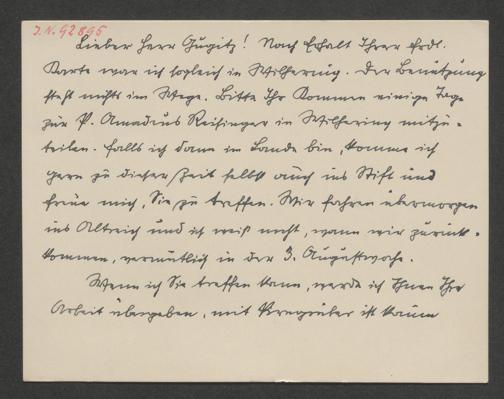 J.N. 92895
Lieber Herr Gugitz! Nach Erhalt Ihrer frdl.
Karte war ich sogleich in Wilhering. Der Benützung
steht nichts im Wege. Bitte Ihr Kommen einige Tage
zur P. Amadeus Reisinger in Wilhering mitzu-
teilen. Falls ich dann im Lande bin, komme ich
gern zu dieser Zeit selbst auch ins Stift und
freue mich, Sie zu treffen. Wir fahren übermorgen
ins Altreich und ich weiß nicht, wann wir zurück-
kommen, vermutlich in der 3. Augustwoche.
Wenn ich Sie treffen kann, werde ich Ihnen Ihre
Arbeit übergeben, mit ist kaum